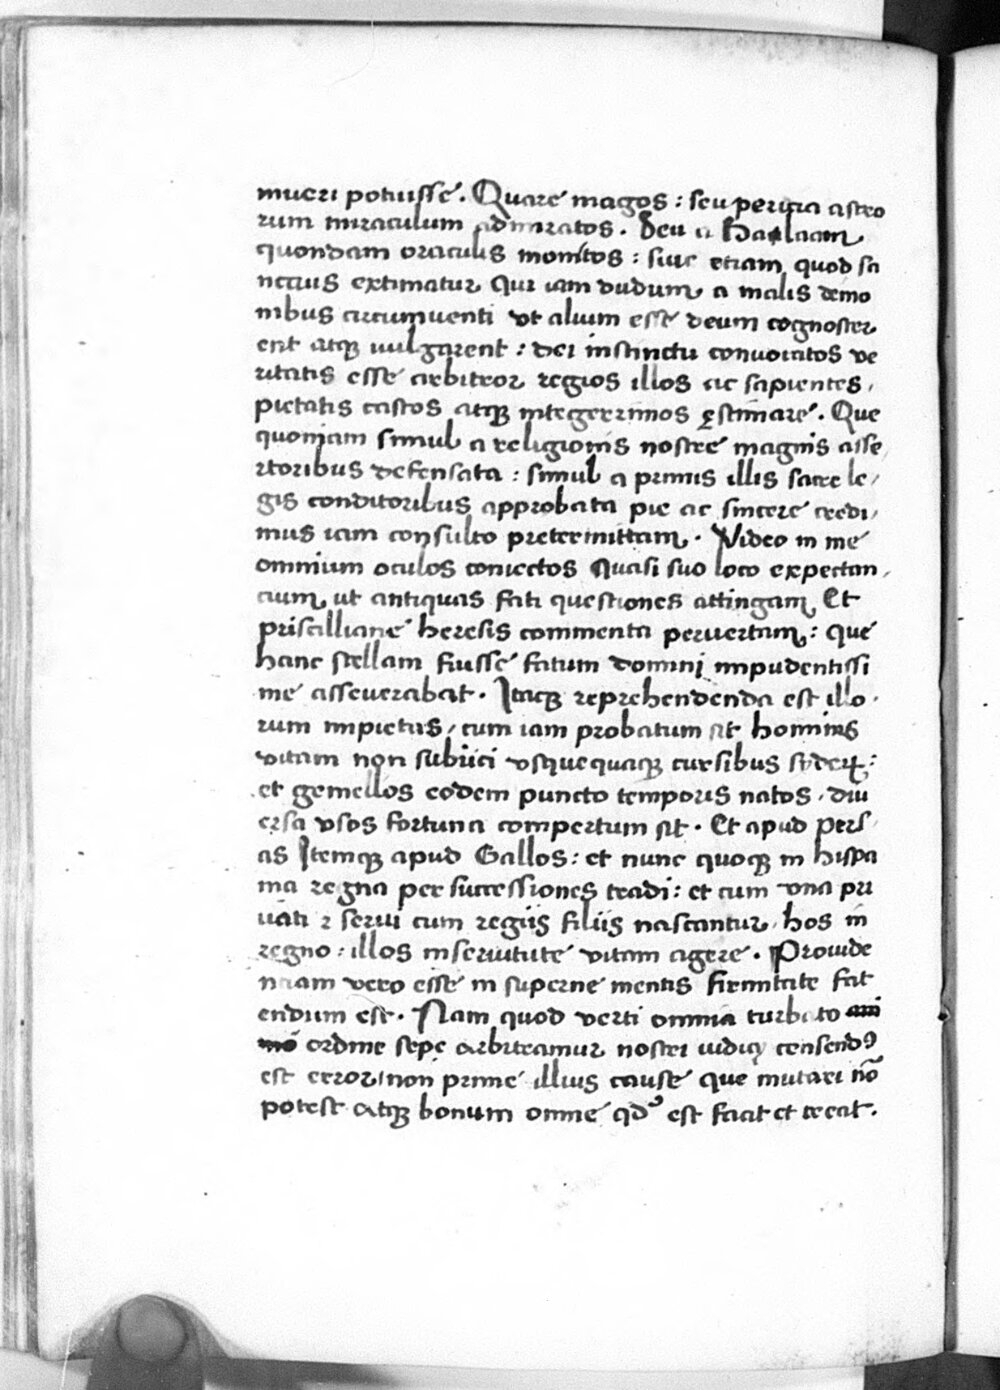 mueri potuisse. Quare magos: seu peritia astro
rum miraculum admiratos. Seu a Baalaam
quondam oraculis monitos: siue etiam quod sa
nctius extimatur qui iam dudum a malis demo
nibus circumuenti vt alium esse deum cognoscer
ent atqꝫ uulgarent: dei instinctu conuocatos ve
ritatis esse arbitror regios illos ac sapientes,
pietatis castos atqꝫ integerrimos ęstimare. Que
quoniam simul a religionis nostre magnis asse,
rtoribus defensata: simul a primis illis sacre le,
gis conditoribus approbata pie ac sincere credi,
mus iam consulto pretermittam. Video in me
omnium oculos coniectos quasi suo loco expectan,
cium ut antiquas fati questiones attingam Et
priscilliane heresis commenta peruertam: que
hanc stellam fuisse fatum domini impudentissi
me asseuerabat. Itaqꝫ reprehendenda est illo,
rum impietas, cum iam probatum sit hominis
vitam non subiici vsquequaqꝫ cursibus syderꝝ:
et gemellos eodem puncto temporis natos, diu
ersa vsos fortuna compertum sit. Et apud pers,
as Itemqꝫ apud Gallos: et nunc quoqꝫ in hispa
nia regna per successiones tradi: et cum vna pri
uati ⁊ serui cum regiis filiis nascantur, hos in
regno: illos in seruitute vitam agere. Prouide
ntiam vero esse in superne mentis firmitate fat
endum est. Nam quod verti omnia turbato
ordine sepe arbitramur nostri iudicii censendꝰ
est error, non prime illius cause que mutari nō
potest atqꝫ bonum omne qdᵓ est facit et creat.